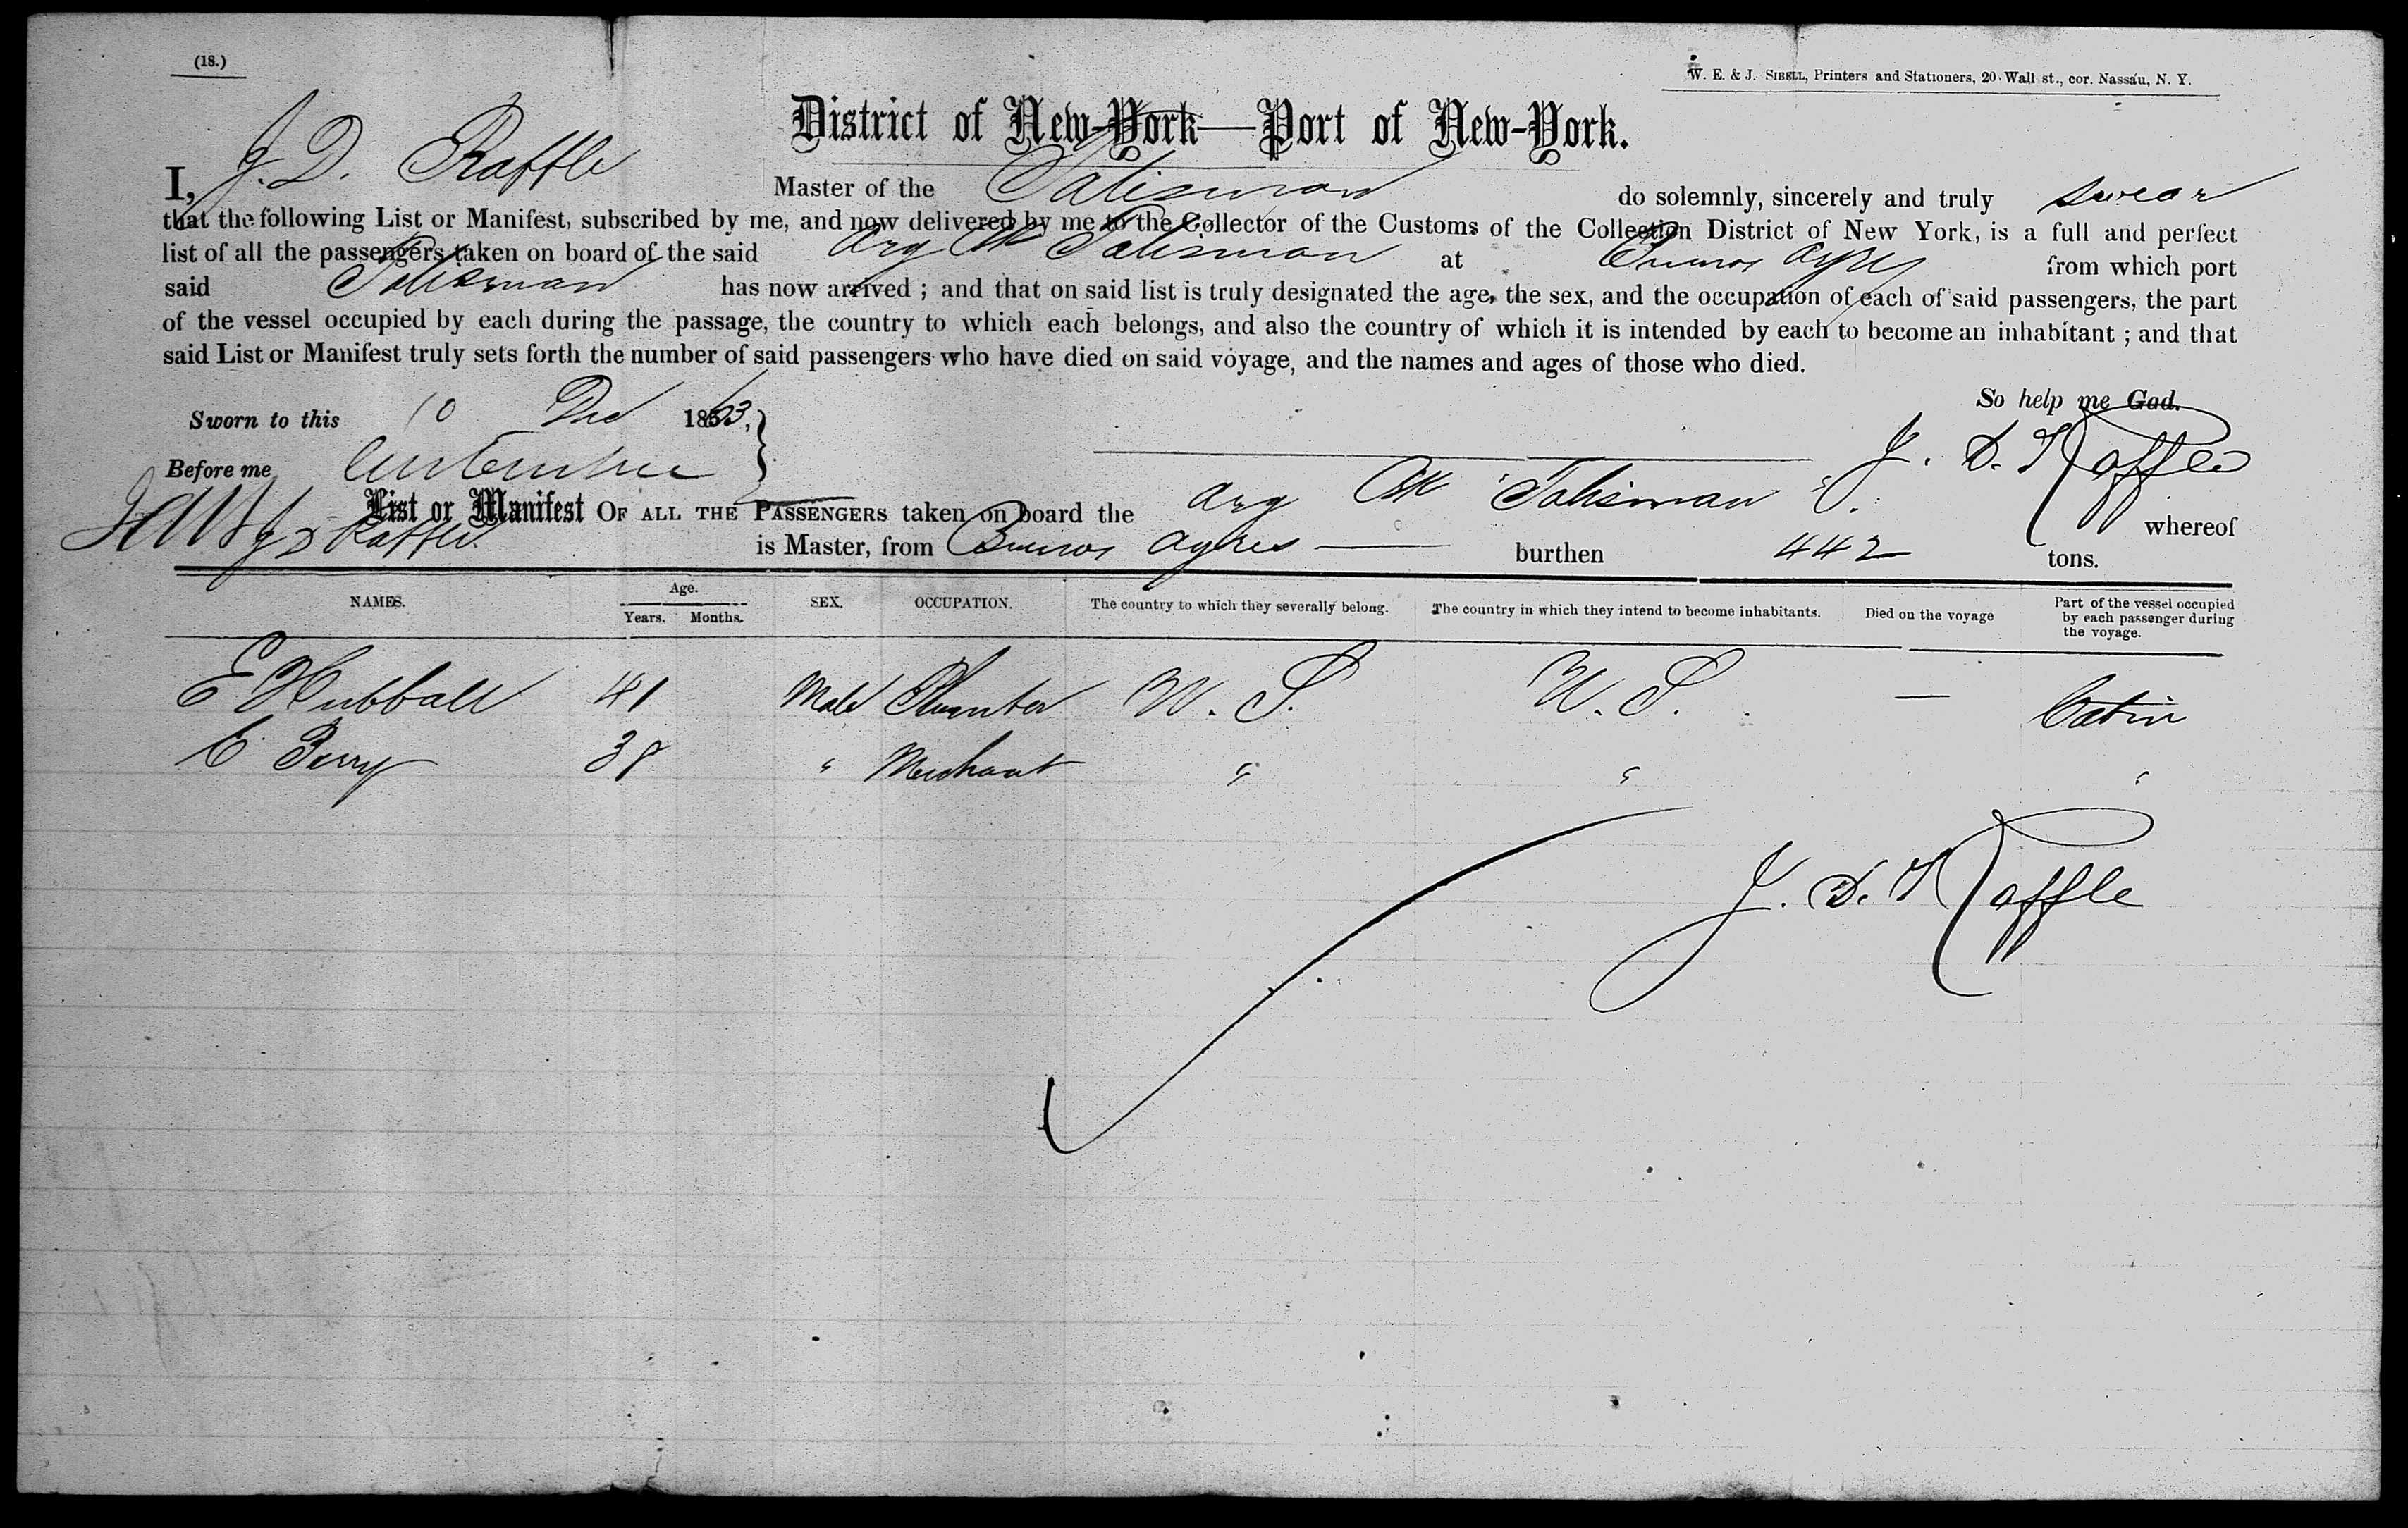 (18.)
W. E. & J. SIBELL, Printers and Stationers, 20 Wall st., cor. Nassau, N. Y.
District of New-York—Port of New-York.
I, J. D. Raffle Master of the Talisman do solemnly, sincerely and truly swear
that the following List or Manifest, subscribed by me, and now delivered by me to the Collector of the Customs of the Collection District of New York, is a full and perfect
list of all the passengers taken on board of the said Arg Bk Talisman at Buenos Ayres from which port
said Talisman has now arrived ; and that on said list is truly designated the age, the sex, and the occupation of each of said passengers, the part
of the vessel occupied by each during the passage, the country to which each belongs, and also the country of which it is intended by each to become an inhabitant ; and that
said List or Manifest truly sets forth the number of said passengers who have died on said voyage, and the names and ages of those who died.
So help me God.
Sworn to this 10 Dec 1863,
J. D. Raffle
Before me
List or Manifest OF ALL THE PASSENGERS taken on board the Arg Bk Talisman whereof
J D Raffle is Master, from Buenos Ayres — burthen 442 tons.
NAMES. Age. Years. Months. SEX. OCCUPATION. The country to which they severally belong. The country in which they intend to become inhabitants. Died on the voyage Part of the vessel occupied by each passenger during the voyage.
E Hubball 41 Male Plumber U. S. U. S. — Cabin
C Perry 38 " Merchant " " "
J. D. Raffle